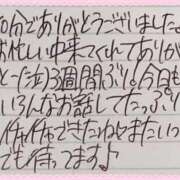 0分でありがとうございました。
お忙しい中来てくれてありが
と〜(泣)3週間ぶり。今日も
いろんなお話してたっぷり
イチャイチャできたね また いつ
でも待ってます♪